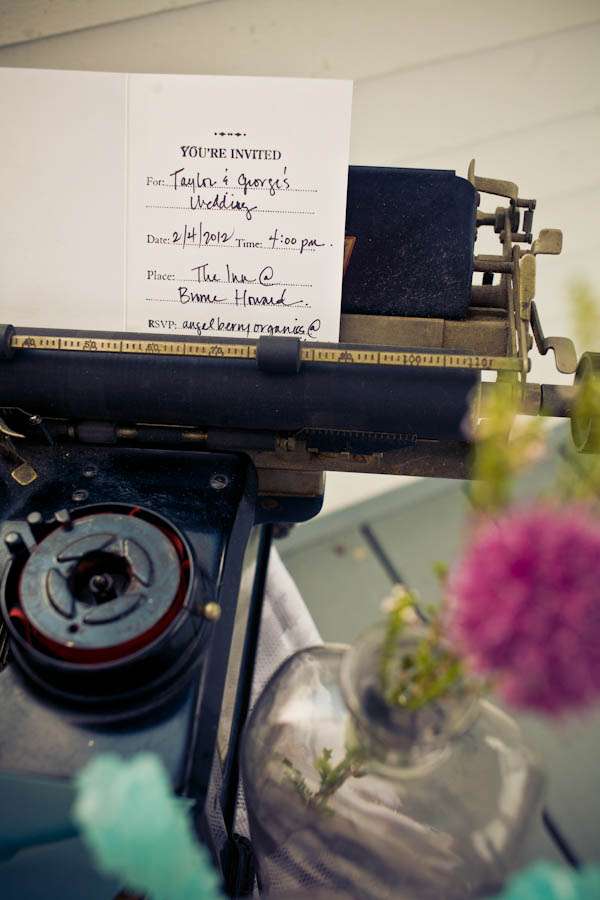 YOU'RE INVITED
For: Taylor & George's
Wedding
Date: 2/4/2012 Time: 4:00 pm.
Place: The Inn @
Brome Howard.
RSVP: angelberryorganics@